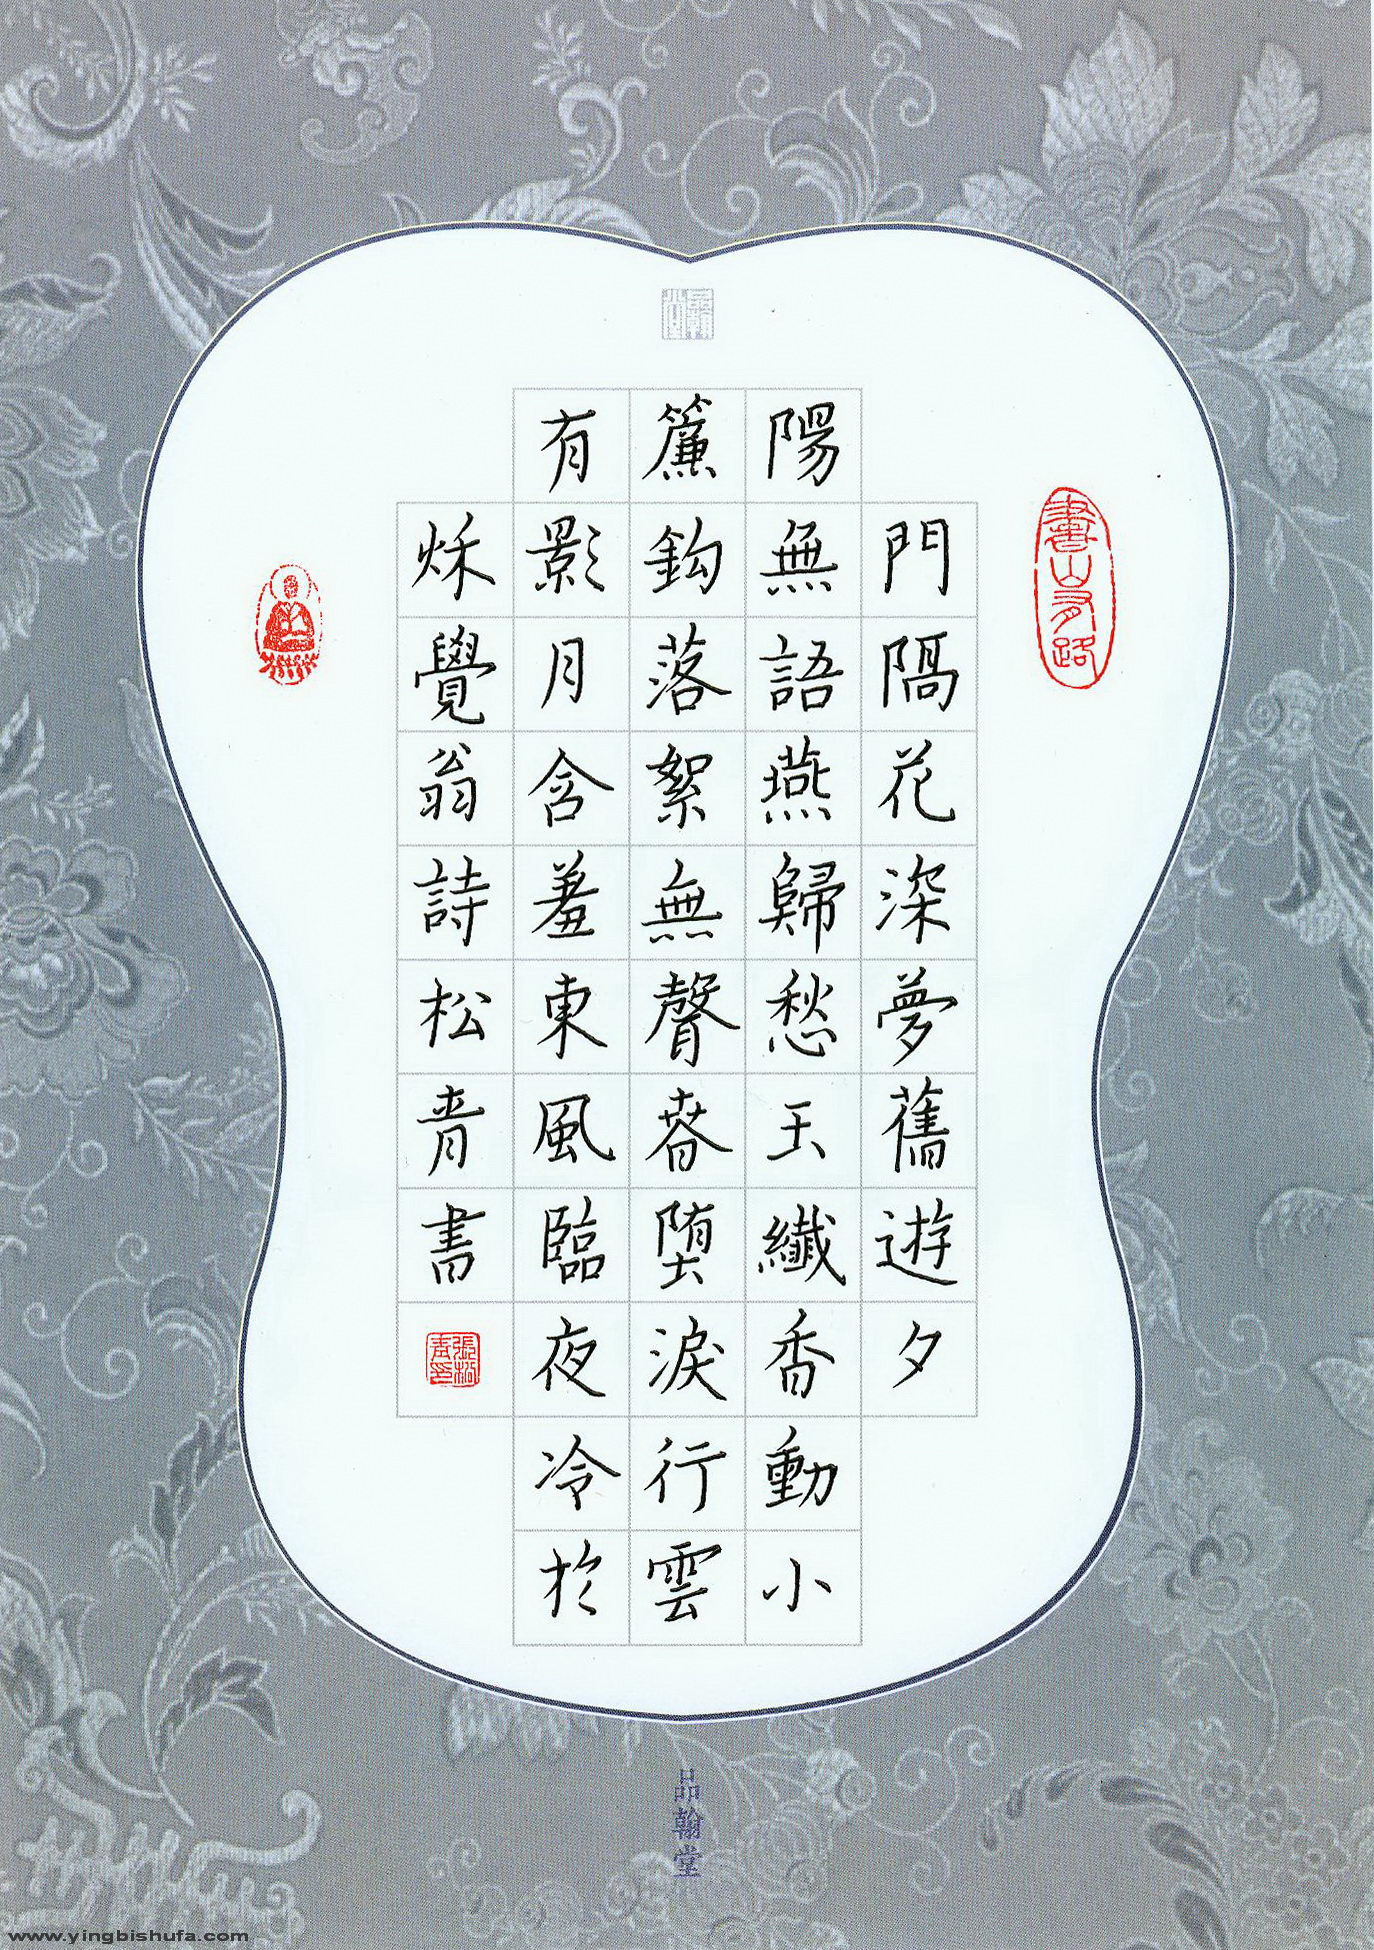 書山有路
門隔花深夢舊遊夕
陽無語燕歸愁玉纖香動小
簾鈎落絮無聲春堕淚行雲
有影月含羞東風臨夜冷於
秌覺翁詩松青書
張松青印
品翰堂
品翰堂
www.yingbishufa.com